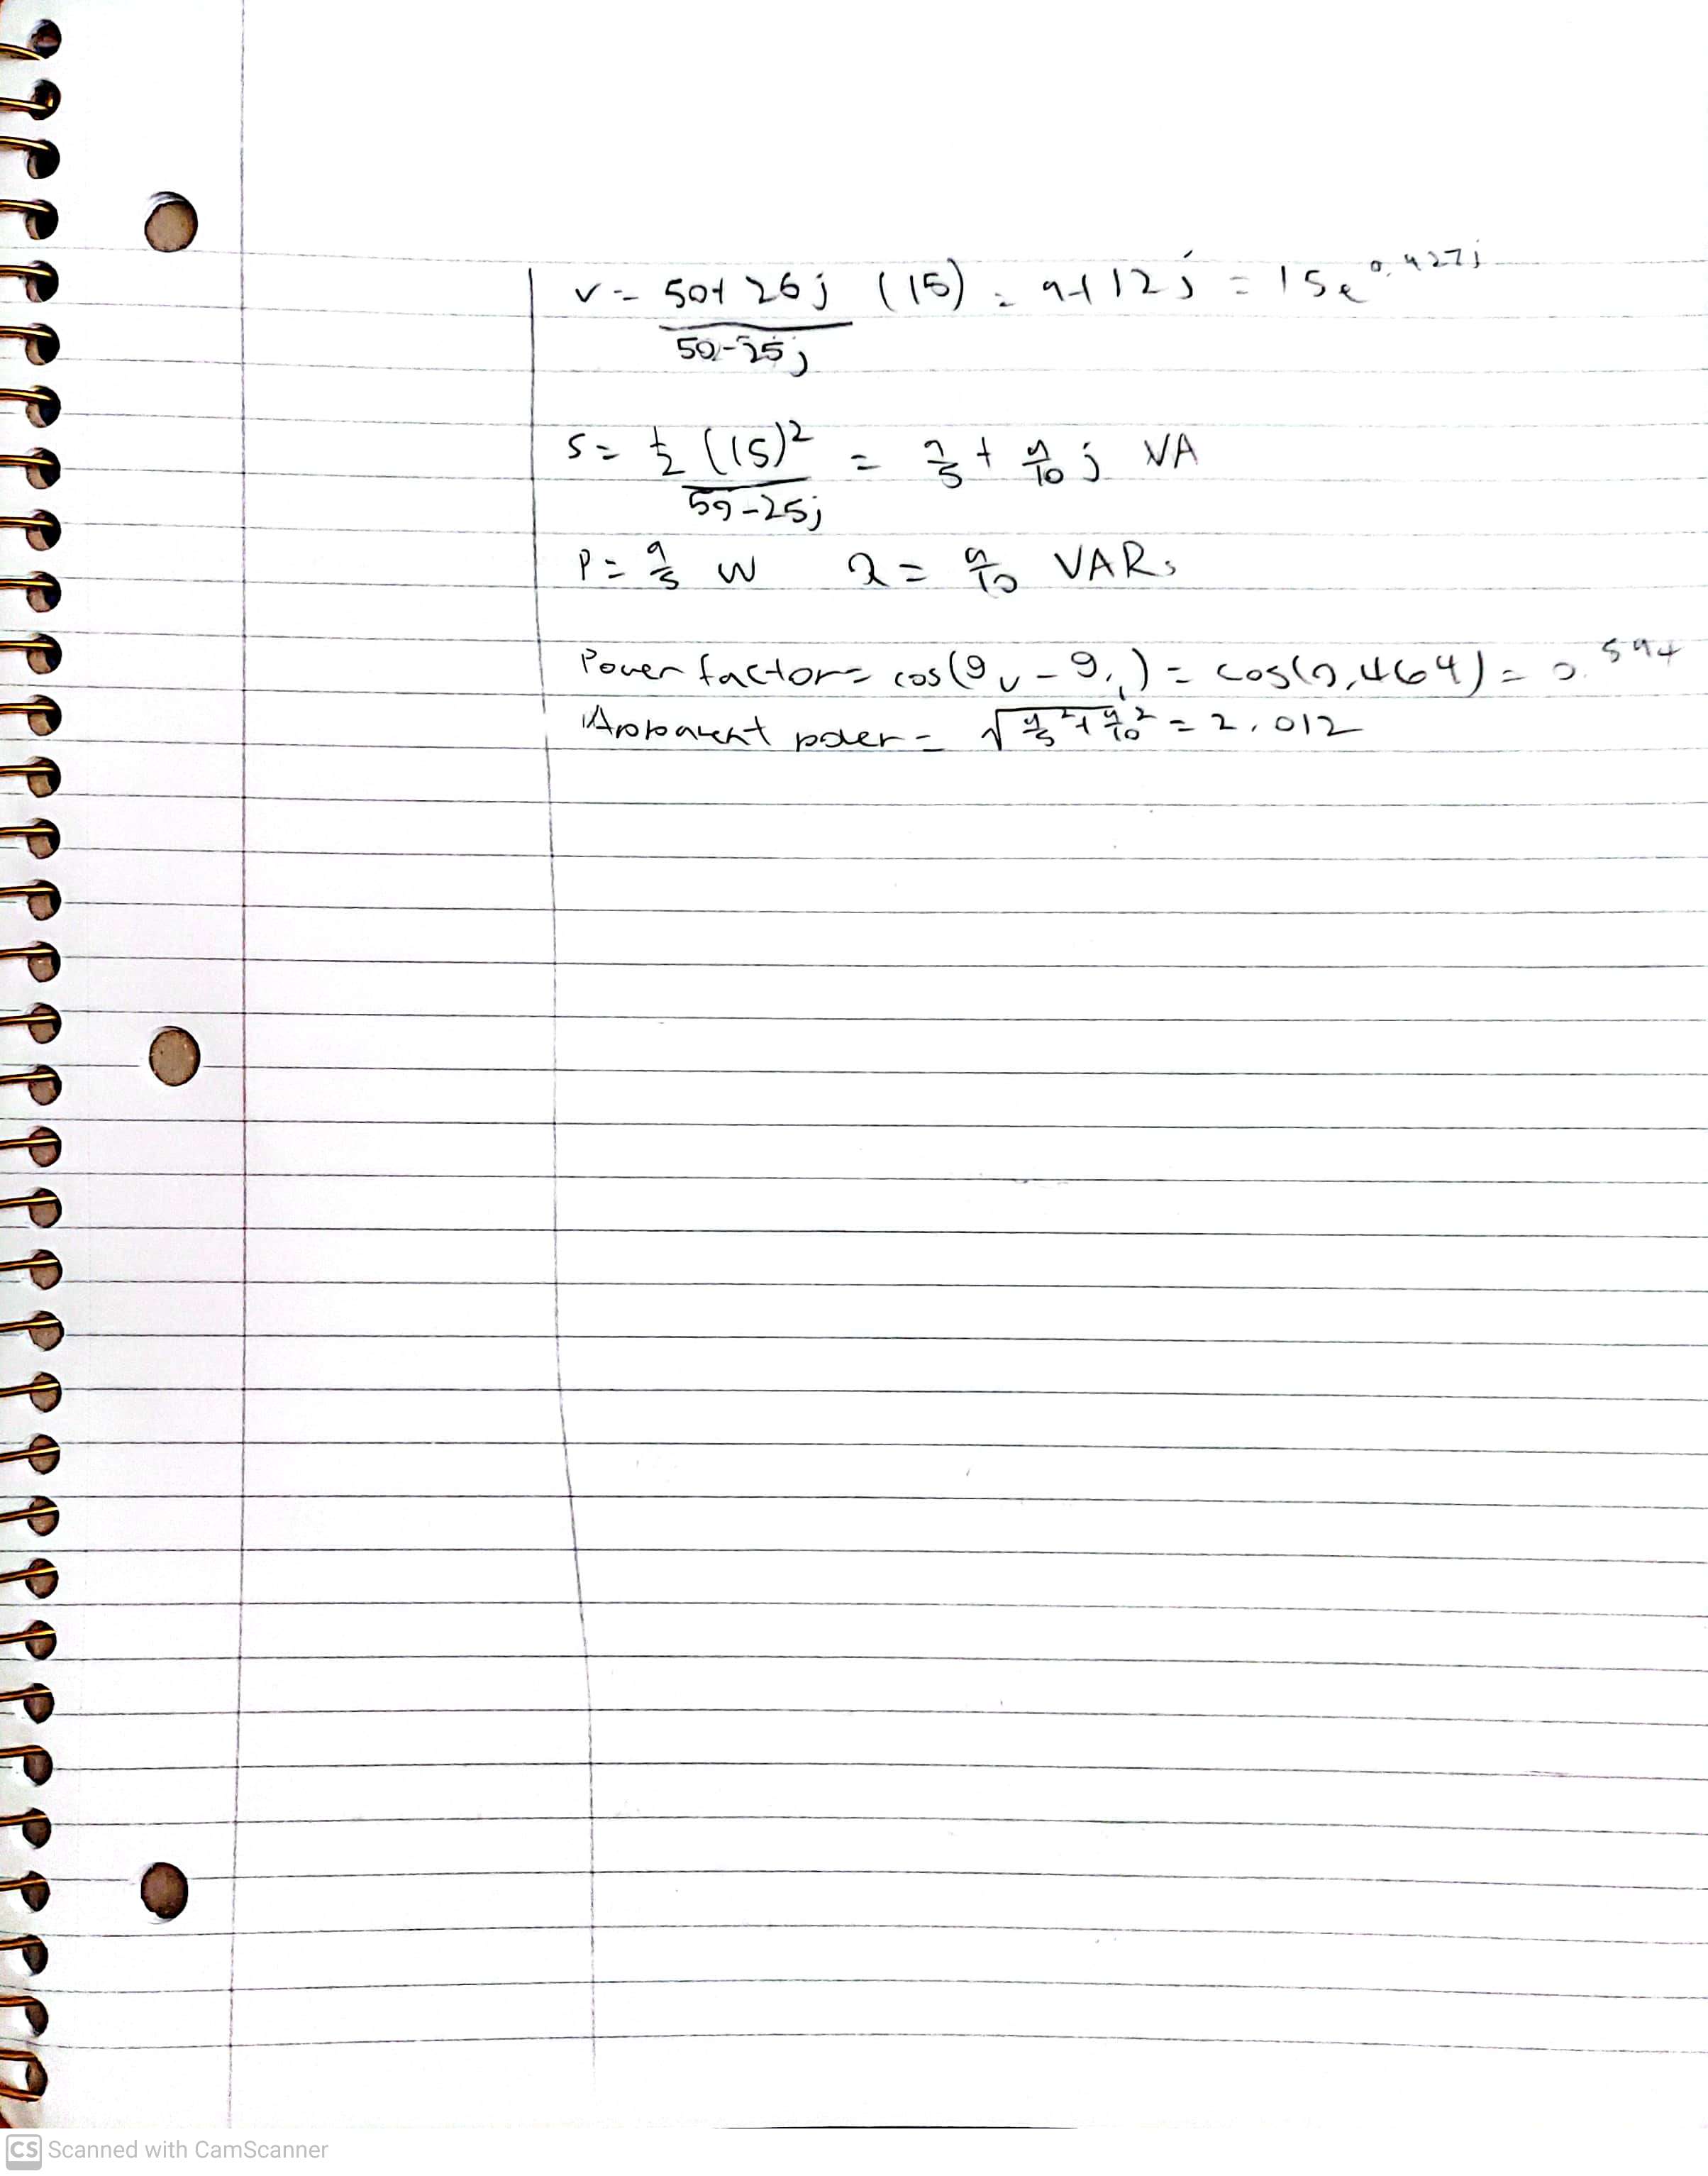 v = 50+25j (15) = 9+12j = 15e^0.927j
50-25j
S = 1/2 (15)² = 9/5 + 9/10 j VA
50-25j
P = 9/5 W Q = 9/10 VARs
Power factor = cos(θv - θi) = cos(0.464) = 0.894
Apparent power = √9/5² + 9/10² = 2.012
CS Scanned with CamScanner